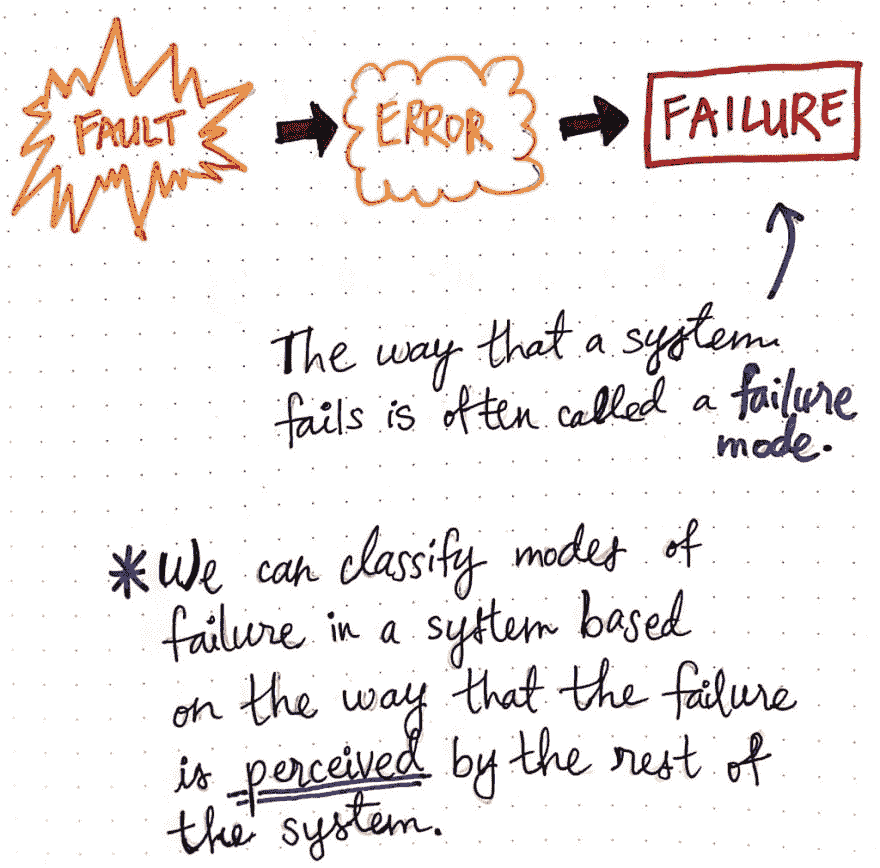 FAULT ERROR FAILURE
The way that a system
fails is often called a failure
mode.
*We can classify modes of
failure in a system based
on the way that the failure
is perceived by the rest of
the system.